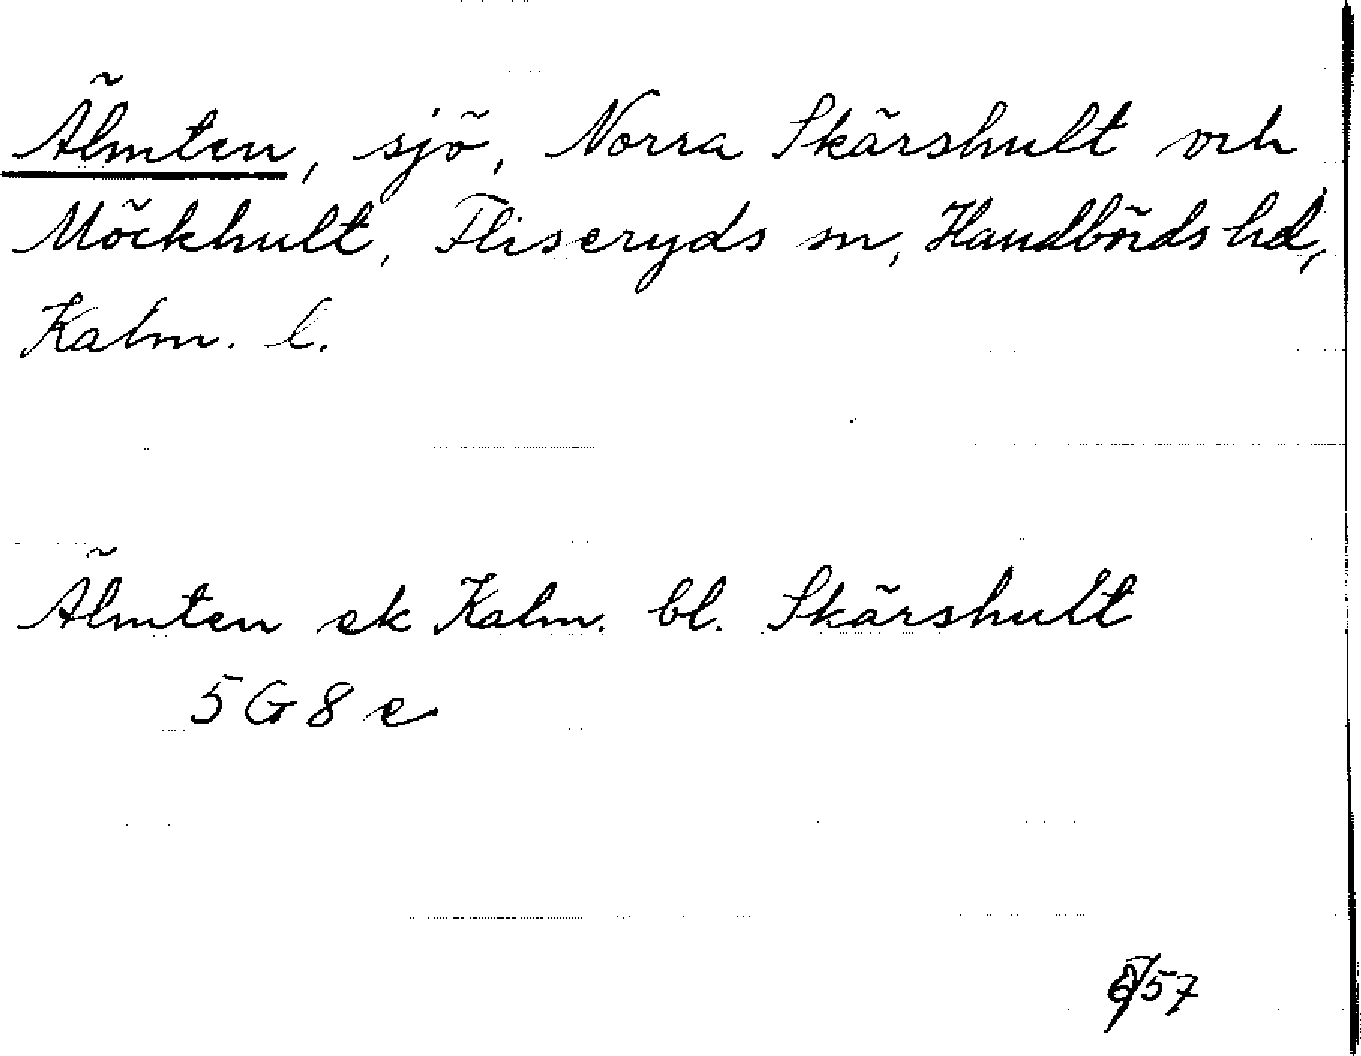 Älmten, sjö, Norra Skärshult och
Möckhult, Fliseryds sn, Handbörds hd,
Kalm. l.
Älmten ek Kalm. bl. Skärshult
5G8e
57